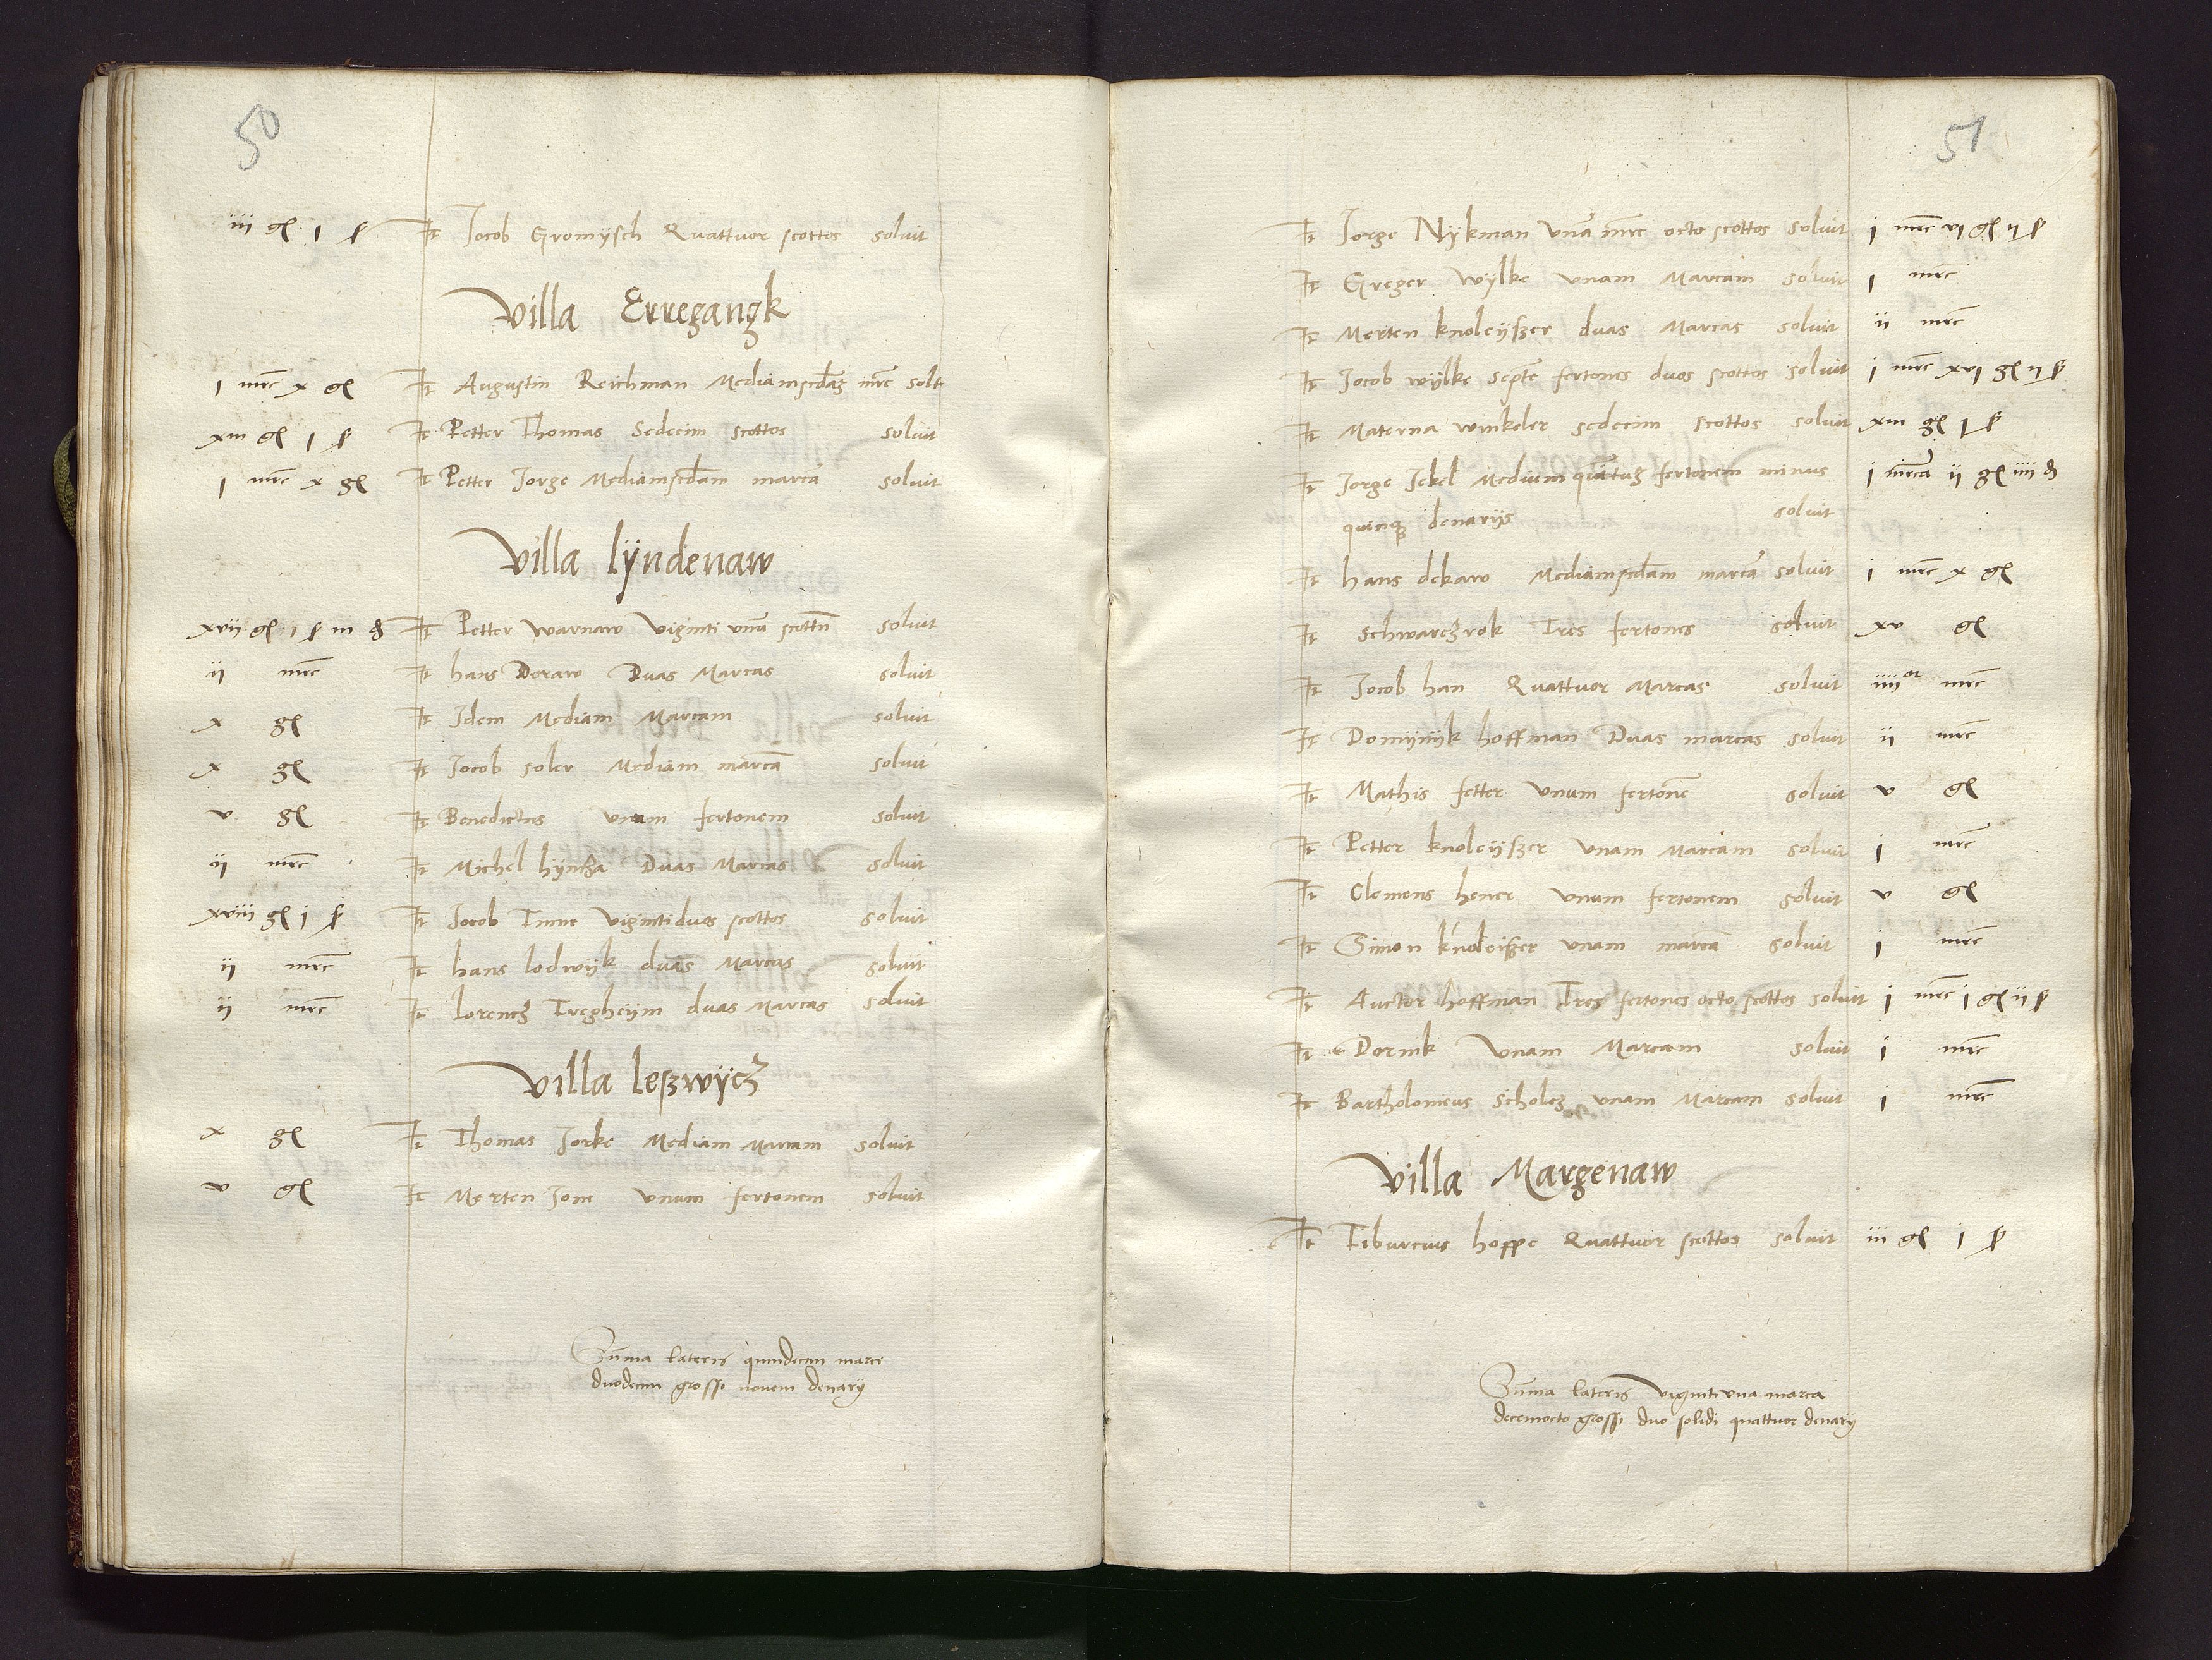 50
iii gl i ſ It Jocob Gromÿsch Quattuor scottos soluit
Villa Erregangk
i mrc x gl It Augustin Reichman Mediamscdaʒ mrc solt
xiii gl i ſ It Petter Thomas Sedecim scottos soluit
i mrc x gl It Petter Jorge Mediamscdam marcā soluit
Villa lÿndenaw
xvii gl i ſ iii d It Petter Warnaw Viginti vnū scottū soluit
ii mrc It hans Doraw Duas Marcas soluit
x gl It Idem Mediam Marcam soluit
x gl It Jocob soler Mediam marcā soluit
v gl It Benedictus vnum fertonem soluit
ii mrc It Michel hÿncza Duas Marcas soluit
xviii gl i ſ It Jocob Time Vigintiduos scottos soluit
ii mrc It hans lodwÿk duas Marcas soluit
ii mrc It lorencʒ Tregheÿm duas Marcas soluit
Villa leßwÿcʒ
x gl It Thomas Jorke Mediam Marcam soluit
v gl It Merten Jone vnum fertonem soluit
Sūma lateris quindecim marce
duodecim grossi novem denarÿ
51
It Jorge Nÿkman Vnā mrc octo scottos soluit i mrc vi gl ii ſ
It Greger Wÿlke vnam Marcam soluit i mrc
It Merten knoleÿßer duas Marcas soluit ii mrc
It Jocob wÿlke septē fertones duos scottos soluit i mrc xvi gl ii ſ
It Materna winkeler sedecim scottos soluit xiii gl i ſ
It Jorge Jekel Medium quītuʒ fertonem minus i mrcā ii gl iiii d
quinqʒ denarÿs soluit
It hans dekaw Mediamscdam marcā soluit i mrc x gl
It Schwarcʒrok Tres fertones soluit xv gl
It Jocob han Quattuor Marcas soluit iiii or mrc
It Domÿnÿk hoffman Duas marcas soluit ii mrc
It Mathis fetter vnum fertonē soluit v gl
It Petter knoleÿßer vnam Marcam soluit i mrc
It Clemens hener vnum fertonem soluit v gl
It Simon knoleißer vnam marcā soluit i mrc
It Auctor hoffman Tres fertones octo scottos soluit i mrc i gl ii ſ
It Dornik Vnam Marcam soluit i mrc
It Bartholomeus Scholcʒ vnam Marcam soluit i mrc
Villa Margenaw
It Tiburcius hoppe Quattuor scottos soluit iii gl i ſ
Sūma lateris Vigintivna marca
decemocto grossi duo solidi quattuor denarÿ